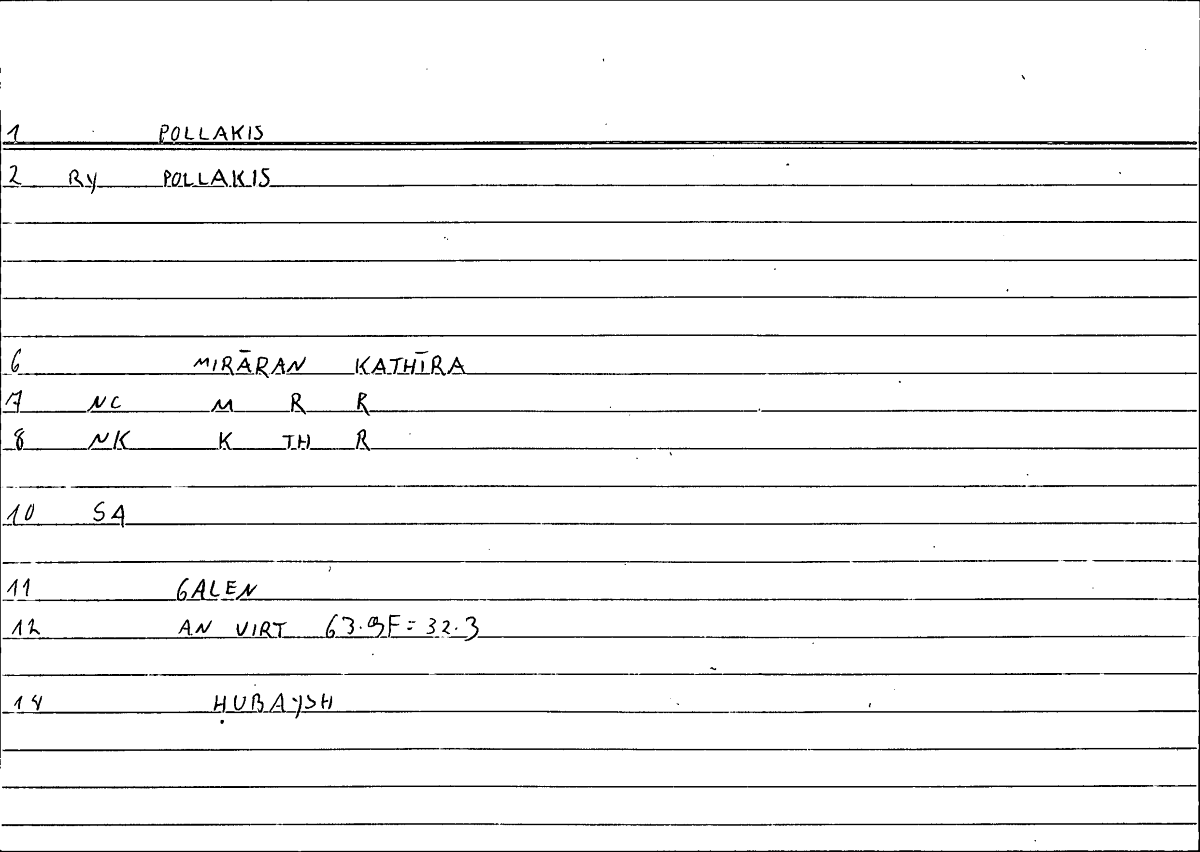 1 POLLAKIS
2 Ry POLLAKIS
6 MIRĀRAN KATHĪRA
7 NC M R R
8 NK K TH R
10 SA
11 GALEN
12 AN VIRT 63.9F = 32.3
14 ḤUBAYSH